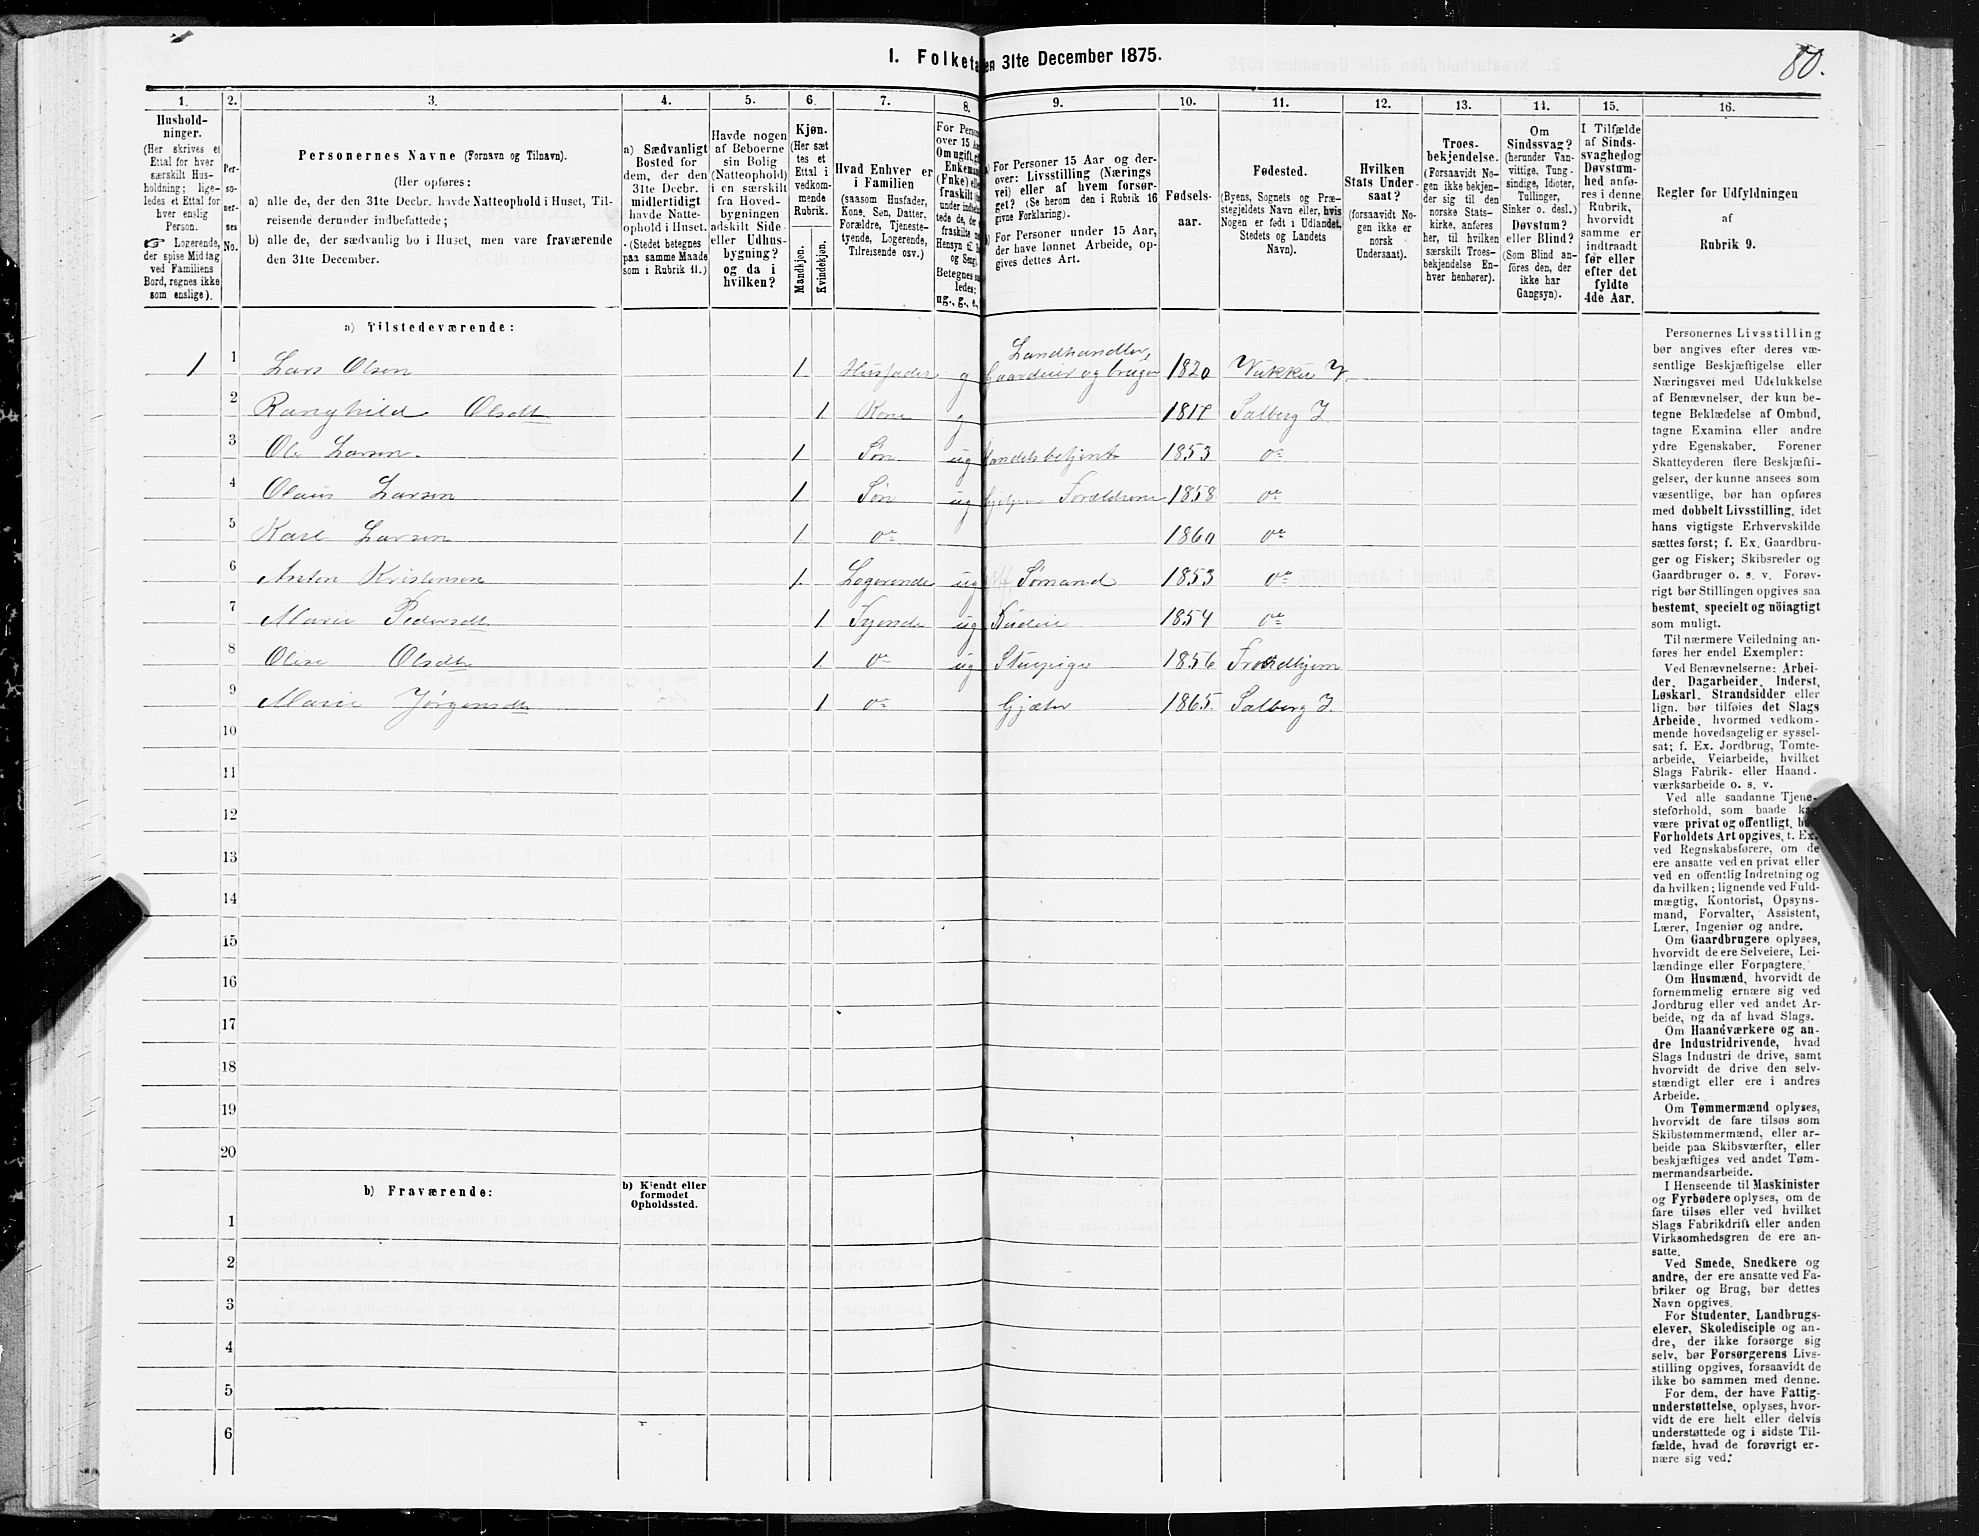 I. Folketa en 31te December 1875.
80.
1. 2. 3. 4. 5. 6. 7. 8. 9. 10. 11. 12. 13. 14. 15. 16.
Hushold-
ninger.
(Her skrives et
Ettal for hver
særskilt Hus-
holdning; lige-
ledes et Ettal for
hver enslig
Person.
☞ Logerende,
der spise Middag
ved Familiens
Bord, regnes ikke
som enslige).
Per-
so-
ner-
nes
No.
Personernes Navne (Fornavn og Tilnavn).
(Her opføres:
a) alle de, der den 31te Decbr. havde Natteophold i Huset, Til-
reisende derunder indbefattede;
b) alle de, der sædvanlig bo i Huset, men vare fraværende
den 31te December.
a) Sædvanligt
Bosted for
dem, der den
31te Decbr.
midlertidigt
havde Natte-
ophold i Huset.
(Stedet betegnes
paa samme Maade
som i Rubrik 11.)
Havde nogen
af Beboerne
sin Bolig
(Natteophold)
i en særskilt
fra Hoved-
bygningen
adskilt Side-
eller Udhus-
bygning?
og da i
hvilken?
Kjøn.
(Her sæt
tes et
Ettal i
vedkom-
mende
Rubrik.
Mandkjøn.
Kvindekjøn.
Hvad Enhver er
i Familien
(saasom Husfader,
Kone, Søn, Datter,
Forældre, Tjeneste-
tyende, Logerende,
Tilreisende osv.)
For Person
over 15 Aar
Om ugift, g
Enkeman
(Fnke) el
fraskilt
under indbe
tede de, de
fraskilte
Hensyn til
og Seng.
Betegnes s
ledes:
ug., g., e.,
a) For Personer 15 Aar og der-
over: Livsstilling (Nærings
vei) eller af hvem forsør-
get? (Se herom den i Rubrik 16
givne Forklaring).
b) For Personer under 15 Aar,
der have lønnet Arbeide, op-
gives dettes Art.
Fødsels-
aar.
Fødested.
(Byens, Sognets og Præ-
stegjeldets Navn eller, hvis
Nogen er født i Udlandet,
Stedets og Landets
Navn).
Hvilken
Stats Under-
saat?
(forsaavidt No-
gen ikke er
norsk
Undersaat).
Troes-
bekjendelse.
(Forsaavidt No-
gen ikke bekjen-
der sig til den
norske Stats-
kirke, anføres
her, til hvilken
særskilt Troes-
bekjendelse En-
hver henhører).
Om
Sindssvag?
(herunder Van-
vittige, Tung-
sindige, Idioter,
Tullinger,
Sinker o. desl.)
Døvstum?
eller Blind?
(Som Blind an-
føres den, der
ikke har
Gangsyn).
I Tilfælde
af Sinds-
svaghed og
Døvstum-
hed anfø-
res i denne
Rubrik,
hvorvidt
samme er
indtraadt
før eller
efter det
fyldte
4de Aar.
Regler for Udfyldningen
af
Rubrik 9.
a) Tilstedeværende:
1 1 Lars Olsen 1. Husfader g Landhandler, Gaardeier og bruger 1820 Vukku V.
2 Ranghild Olsdt 1. Kone g 1817 Salberg I
3 Ole Larsen. 1. Søn ug Handelsbetjent 1853 do
4 Olaus Larsen 1. Søn ug hjelper Forældrene 1858 do
5 Karl Larsen 1. do 1860 do
6 Anton Kristensen 1. Logerende ug Sømand 1853 do
7 Marie Pedersdt. 1. Tjenende ug Budeie 1854 do
8 Olise Olsdt. 1. do ug Stuepige 1856 Trondhjem
9 Marie Jørgensdt. 1. do Gjæter 1865. Salberg I.
10
11
12
13
14
15
16
17
18
19
20
b) Fraværende:
b) Kjendt eller
formodet
Opholdssted.
1
2
3
4
5
6
Personernes Livsstilling
bør angives efter deres væ-
sentlige Beskjæftigelse eller
Næringsvei med Udelukkelse
af Benævnelser, der kun be-
tegne Beklædelse af Ombud,
tagne Examina eller andre
ydre Egenskaber. Forener
Skatteyderen flere Beskjæfti-
gelser, der kunne ansees som
væsentlige, bør han opføres
med dobbelt Livsstilling, idet
hans vigtigste Erhvervskilde
sættes først; f. Ex. Gaardbru-
ger og Fisker; Skibsreder og
Gaardbruger o. s. v. Forøv-
rigt bør Stillingen opgives saa
bestemt, specielt og nöiagtigt
som muligt.
Til nærmere Veiledning an-
føres her endel Exempler:
Ved Benævnelserne: Arbei-
der, Dagarbeider, Inderst,
Løskarl, Strandsidder eller
lign. bør tilføies det Slags
Arbeide, hvormed vedkom-
mende hovedsagelig er syssel-
sat; f. Ex. Jordbrug, Tomte-
arbeide, Veiarbeide, hvilket
Slags Fabrik- eller Haand-
værksarbeide o. s. v.
Ved alle saadanne Tjene-
steforhold, som baade kan
være privat og offentligt, bør
Forholdets Art opgives, t. Ex.
ved Regnskabsførere, om de
ere ansatte ved en privat eller
ved en offentlig Indretning og
da hvilken; lignende ved Fuld-
mægtig, Kontorist, Opsyns-
mand, Forvalter, Assistent,
Lærer, Ingeniør og andre.
Om Gaardbrugere oplyses,
hvorvidt de ere Selveiere, Lei-
lændinge eller Forpagtere.
Om Husmænd, hvorvidt de
fornemmelig ernære sig ved
Jordbrug eller ved andet Ar-
beide, og da af hvad Slags.
Om Haandværkere og an-
dre Industridrivende, hvad
Slags Industri de drive, samt
hvorvidt de drive den selv-
stændigt eller ere i andres
Arbeide.
Om Tømmermænd oplyses,
hvorvidt de fare tilsøs som
Skibstømmermænd, eller ar-
beide paa Skibsværfter, eller
beskjæftiges ved andet Tøm-
mermandsarbeide.
I Henseende til Maskinister
og Fyrbødere oplyses, om de
fare tilsøs eller ved hvilket
Slags Fabrikdrift eller anden
Virksomhedsgren de ere an-
satte.
Ved Smede, Snedkere og
andre, der ere ansatte ved Fa-
briker og Brug, bør dettes
Navn opgives.
For Studenter, Landbrugs-
elever, Skoledisciple og an-
dre, der ikke forsørge sig
selv, bør Forsørgerens Livs-
stilling opgives, forsaavidt de
ikke bo sammen med denne.
For dem, der have Fattig-
understøttelse, oplyses, hvor-
vidt de ere helt eller delvis
understøttede og i sidste Til-
fælde, hvad de forøvrigt er-
nære sig ved.